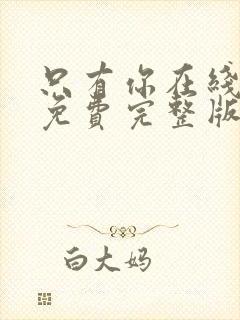 只有你在线
免费完整版
白大妈